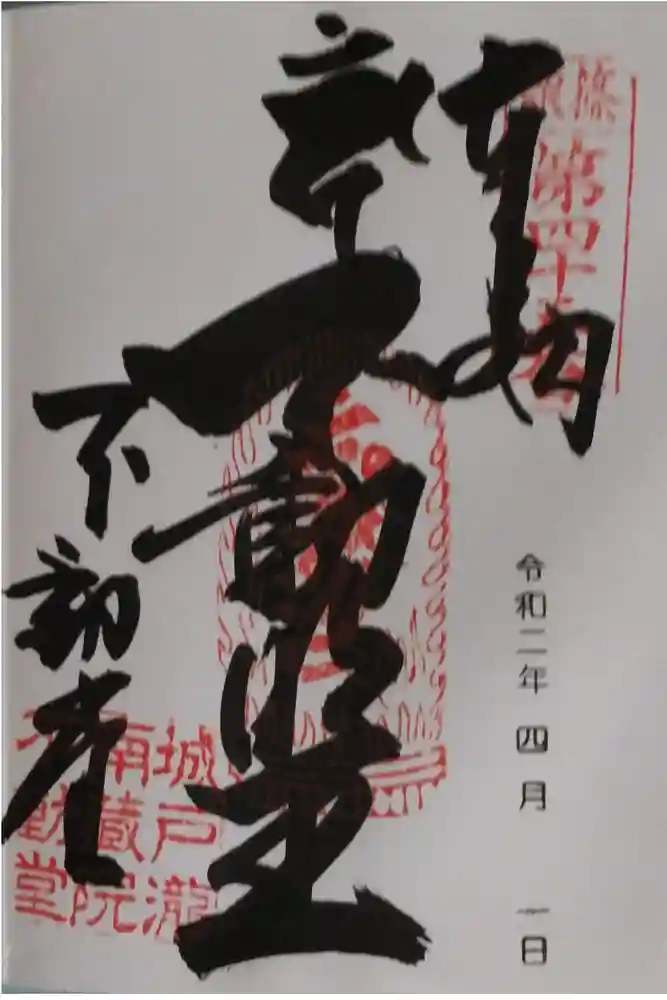 第四十五番
令和二年 四月 一日
不動明王
不動堂
城戸瀧
南蔵院
不動堂